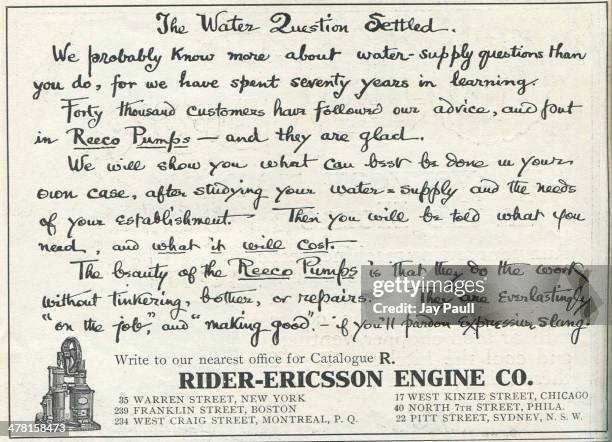 The Water Question Settled.
We probably know more about water-supply questions than
you do, for we have spent seventy years in learning.
Forty thousand customers have followed our advice, and put
in Reeco Pumps — and they are glad.
We will show you what can best be done in your
own case, after studying your water-supply and the needs
of your establishment. Then you will be told what you
need, and what it will cost.
The beauty of the Reeco Pumps is that they do the work
without tinkering, bother, or repairs. They are everlastingly
"on the job," and "making good" — if you'll pardon expressive slang
gettyimages
Jay Paull
Write to our nearest office for Catalogue R.
RIDER-ERICSSON ENGINE CO.
35 WARREN STREET, NEW YORK
239 FRANKLIN STREET, BOSTON
234 WEST CRAIG STREET, MONTREAL, P. Q.
17 WEST KINZIE STREET, CHICAGO
40 NORTH 7TH STREET, PHILA.
22 PITT STREET, SYDNEY, N. S. W.
478158473